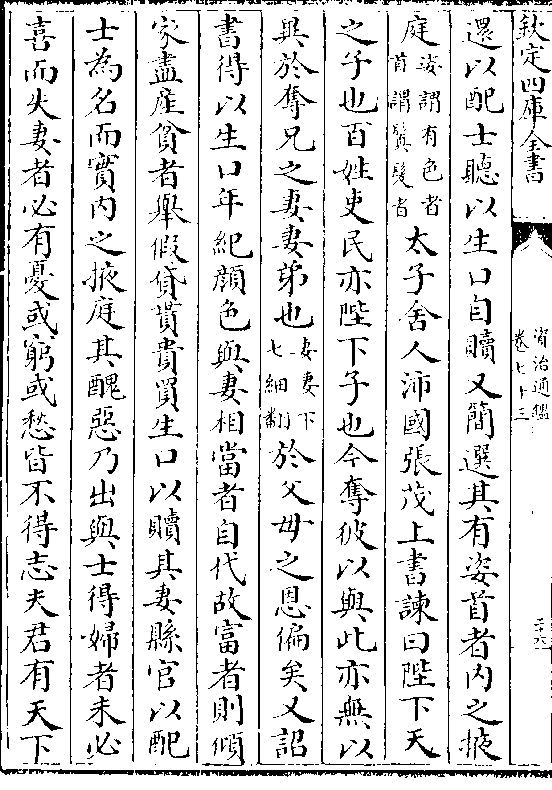 欽定四庫全書
資治通鑑
卷七十三
二十六
還以配士聽以生口自贖又簡選其有姿首者内之掖
庭姿謂有色者首謂鬒髮者太子舍人沛國張茂上書諫曰陛下天
之子也百姓吏民亦陛下子也今奪彼以與此亦無以
異於奪兄之妻妻弟也妻妻下七細翻於父母之恩偏矣又詔
書得以生口年紀顔色與妻相當者自代故富者則傾
家盡産貧者舉假貸貰貴買生口以贖其妻縣官以配
士為名而實内之掖庭其醜惡乃出與士得婦者未必
喜而失妻者必有憂或窮或愁皆不得志夫君有天下